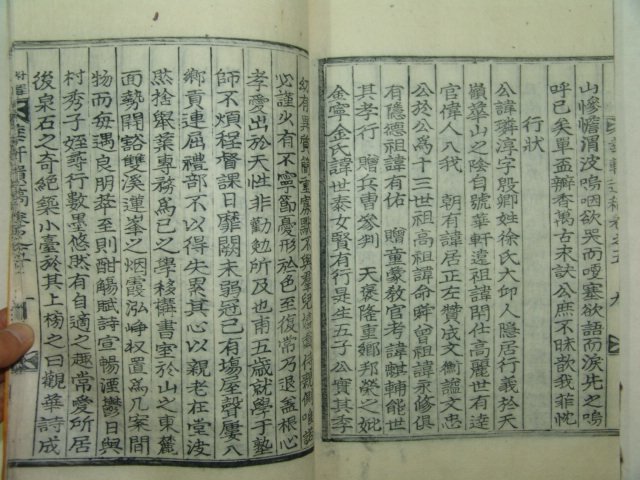 山慘憺渭波嗚咽欲哭而哽塞欲語而淚先之嗚
呼已矣單盃瓣香萬古未訣公庶不昧歆我菲忱
行狀
公諱璘淳字殷卿姓徐氏大邱人隱居行義於天
嶺華山之陰自號華軒遠祖諱閈仕高麗世有達
官偉人入我 朝有諱居正左贊成文衡謚文忠
公於公爲十三世祖高祖諱命舜曾祖諱永修俱
有隱德祖諱有佑 贈童蒙教官考諱麒輔能世
其孝行 贈兵曹參判 天褒隆重鄉邦榮之妣
金寧金氏諱世泰女賢有行是生五子公實其季
幼有異質簡重寡默不與羣兒嬉 侍親側唯諾
必謹少有不寧 憂形於色至復常乃退蓋根心
孝愛出於天性非勸勉所及也甫五歲就學于塾
師不煩程督課日靡闕未弱冠已有塲屋聲屢入
鄉貢連屈禮部不以得失累其心以親老在堂決
然捨擧業專務爲己之學移構書室於山之東麓
面勢開豁雙溪蓮峯之烟霞泓崢奴置爲几案間
物而每遇良朋萃至則酣觴賦詩宣暢湮鬱日與
村秀子姪尋行數墨悠然有自適之趣常愛所居
後泉石之奇絕築小臺於其上榜之曰觀華詩成